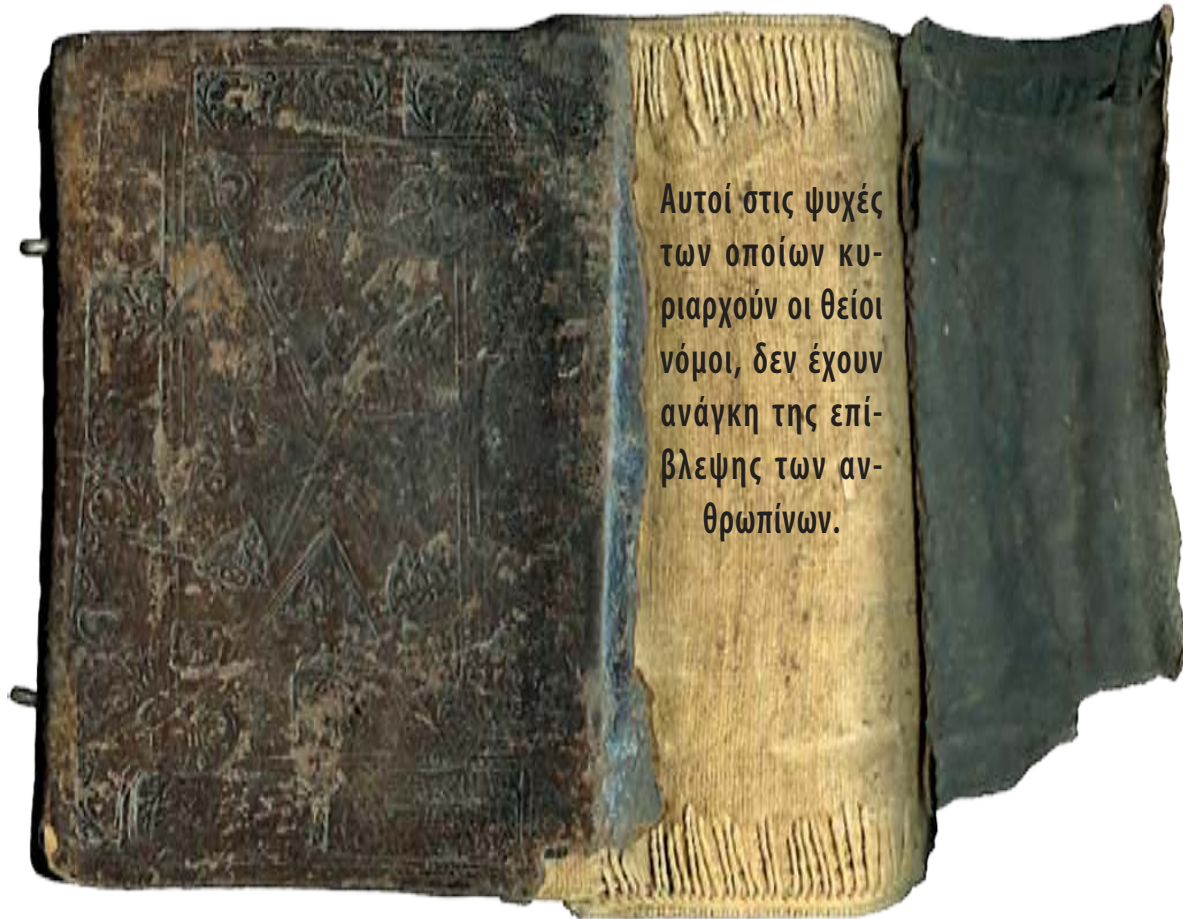 Αυτοί στις ψυχές
των οποίων κυ-
ριαρχούν οι θείοι
νόμοι, δεν έχουν
ανάγκη της επί-
βλεψης των αν-
θρωπίνων.